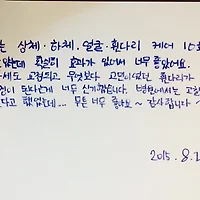 는 상체·하체.얼굴·휜다리 케어 10회
는데 확실히 효과가 있어서 너무 좋았어요.
세도 교정되고 무엇보다 고민이었던 휜다리가
된다는게 너무 신기했습니다. 병원에서는 고칠
다고 했었는데... 무튼 너무 좋네요~ 감사합니다~
2015. 8. 2